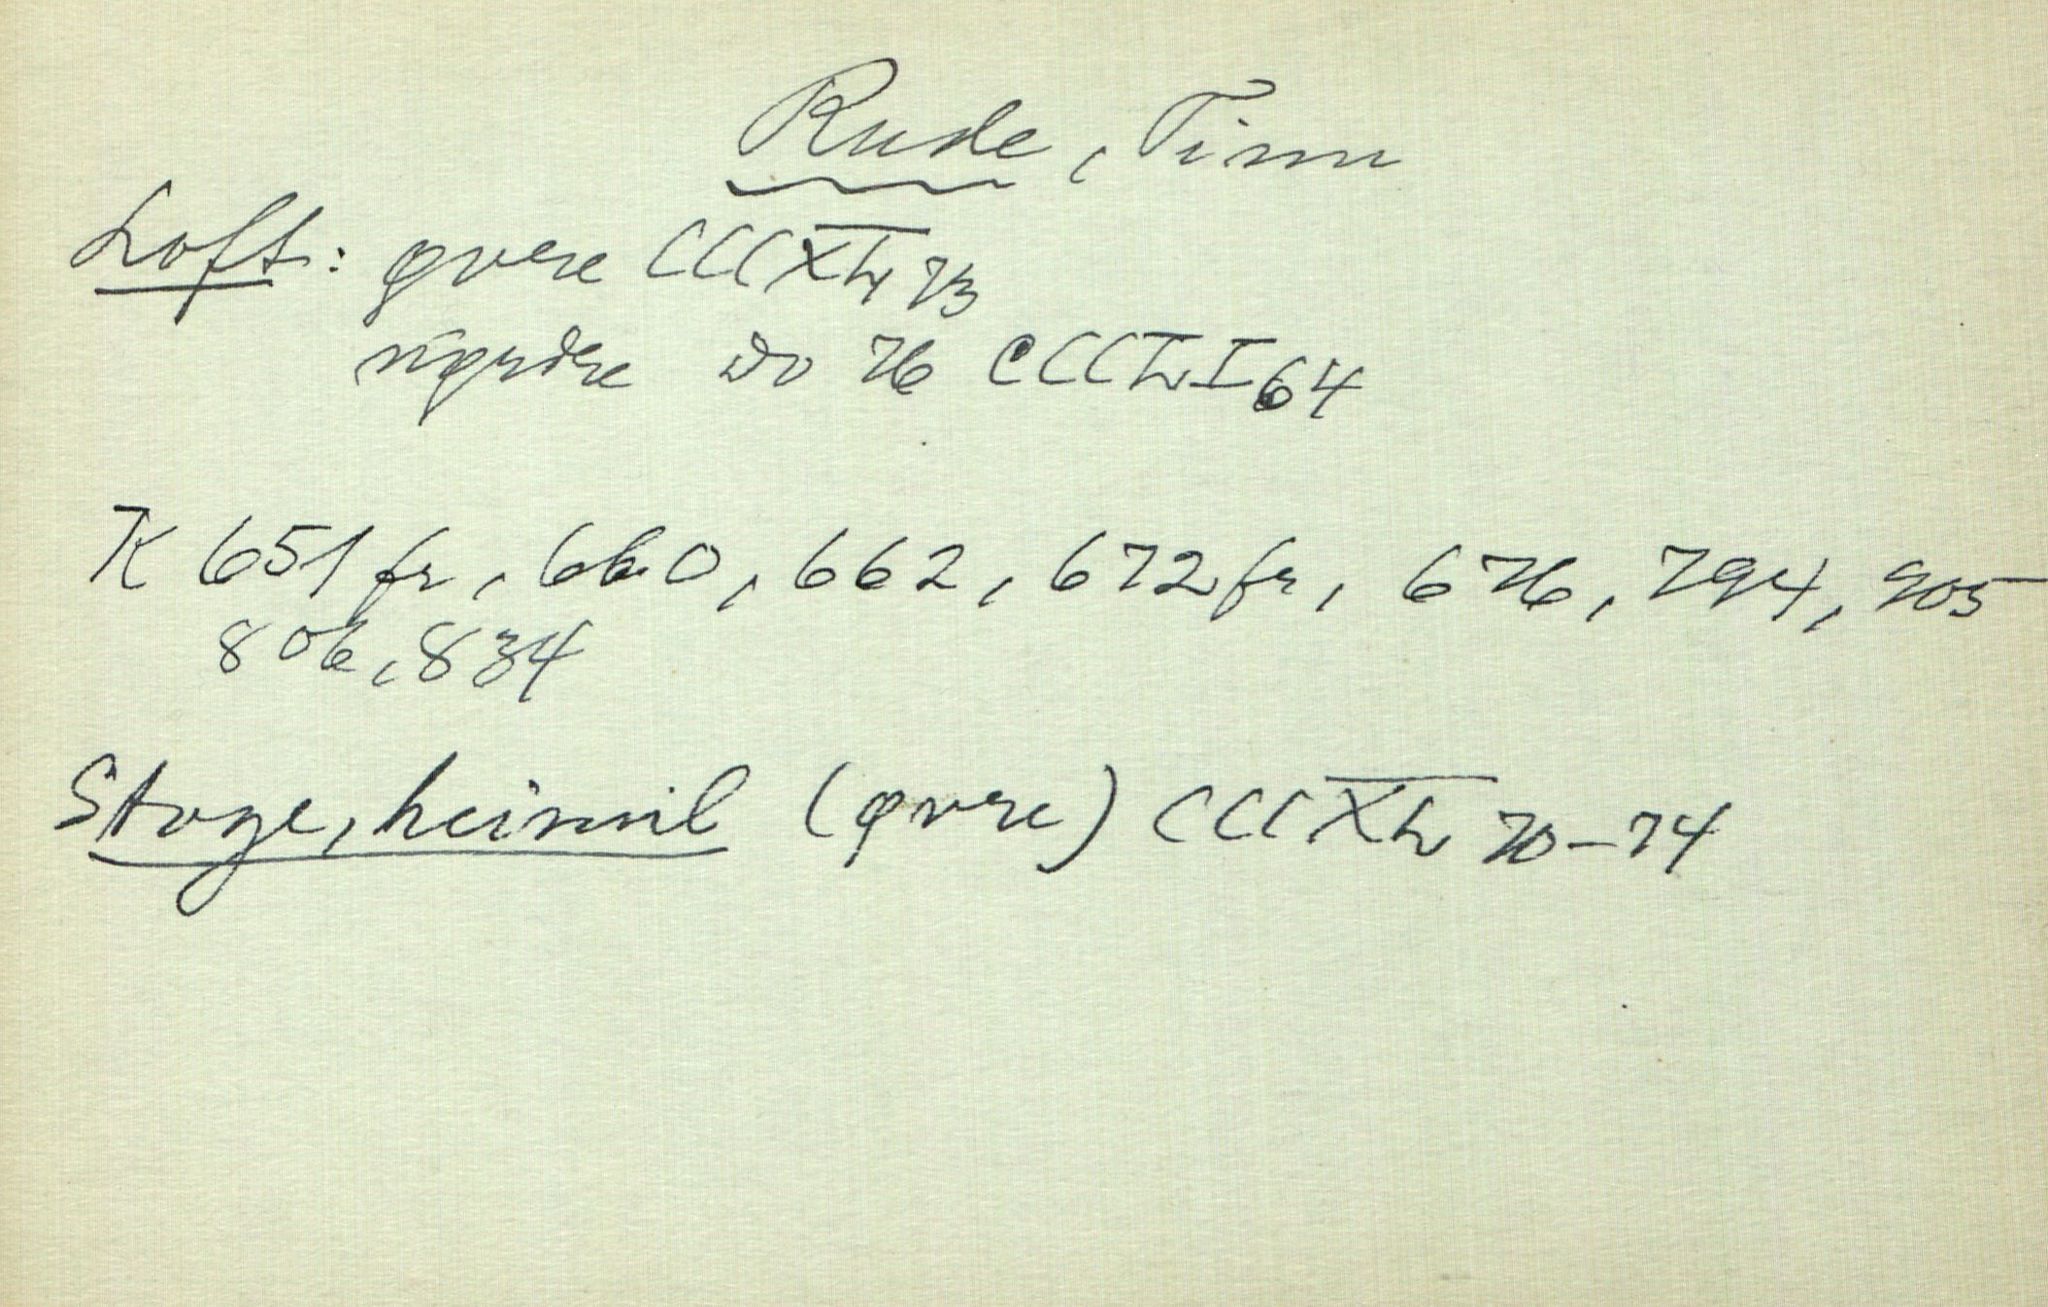 Rude, Tinn
Loft: øvre CCCXL 73
nigarden do 76 CCCLI 64
K 651 fr, 660, 662, 672 fr, 676, 794, 905
806, 834
Stoge, heimil (øvre) CCCXL 70-74